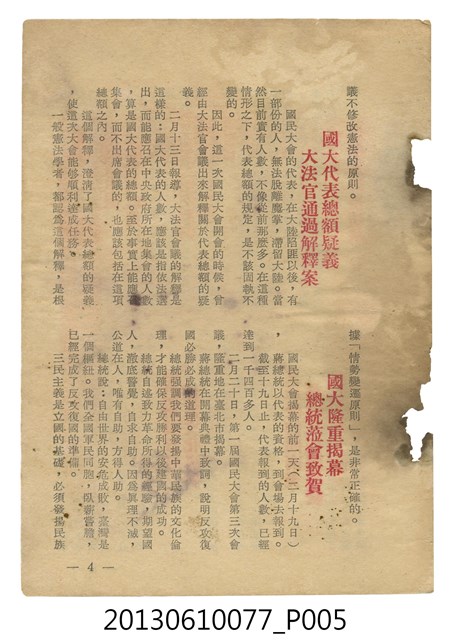 議不修改憲法的原則。
國大代表總額疑義
大法官通過解釋案
國民大會的代表，在大陸陷匪以後，有
一部份的人，無法脫離魔掌，滯留大陸。當
然目前實有人數，不像從前那麼多。在這種
情形之下，代表總額的規定，是不該固執不
變的。
因此，這一次國民大會開會的時候，曾
經由大法官會議出來解釋關於代表總額的疑
義。
二月十三日報導，大法官會議的解釋是
這樣的：國大代表的人數，應該是指依法選
出，而能應召在中央政府所在地集會的人數
，算是國大代表的總額。至於事實上能應召
集會，而不出席會議的，也應該包括在這項
總額之內。
這個解釋，澄清了國大代表總額的疑義
，使這次大會能够順利達成任務。
一般憲法學者，都認為這個解釋，是根
據「情勢變遷原則」，是非常正確的。
國大隆重揭幕
總統蒞會致賀
國民大會揭幕的前一天（二月十九日）
，蔣總統以代表的資格，到會場去報到。
截至十九日止，代表報到的人數，已經
達到一千四百多人。
二月二十日，第一屆國民大會第三次會
議，隆重地在臺北市揭幕。
蔣總統在開幕典禮中致詞，說明反攻復
國必勝必成的道理。
總統強調我們要發揚中華民族的文化倫
理，才能確保反攻勝利以後建國的成功。
總統自述致力革命所得的經驗，期望國
人，澈底醫覺，自求自助。因為真理不滅，
公道在人，唯有自助，方得人助。
總統說：自由世界的安危成敗，臺灣是
一個樞紐。我們全國軍民同胞，臥薪嘗膽，
已經完成了反攻復國的準備。
三民主義是立國的基礎，必須發揚民族
— 4 —
20130610077_P005